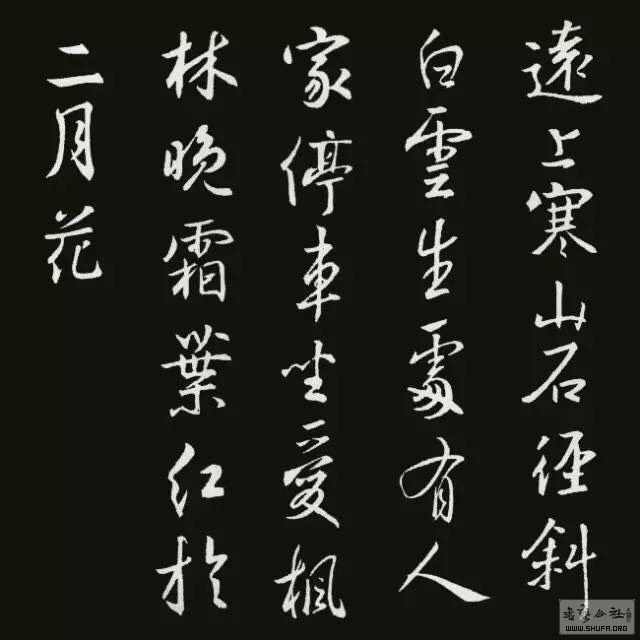 遠上寒山石徑斜
白雲生處有人
家停車坐愛楓
林晚霜葉紅於
二月花
書法公社
WWW.SHUFA.ORG